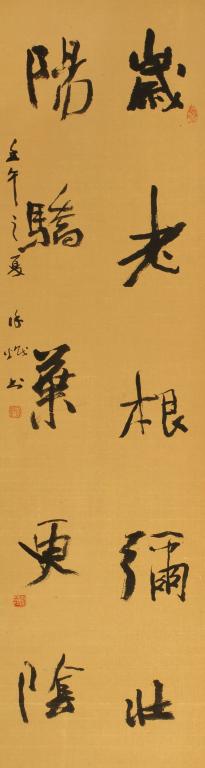 歲老根彌壯
陽驕葉更陰
壬午之夏
書